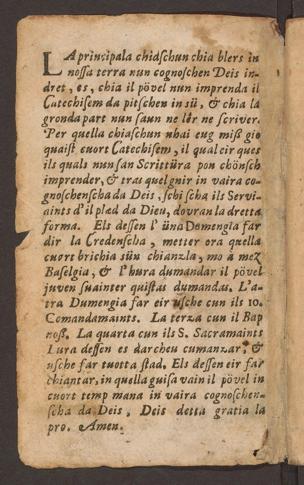 LA principala chiaschun chia blers in
nossa terra nun cognoschen Deis in-
dret, es, chia il pövel nun imprenda il
Catechisem da pitschen in sü, & chia la
gronda part nun saun ne lêr ne scriver.
Per quella chiaschun nhai eug miss gio
quaist cuort Catechisem, il qual eir ques
ils quals nun san Scrittüra pon chönsch
imprender, & tras quel gnir in vaira co-
gnoschenscha da Deis, schi scha ils Servi-
aints d'il plæd da Dieu, dovran la dretta
forma. Els dessen l' üna Dumengia far
dir la Credenscha, metter ora quella
cuort brichia sün chianzla, mo à mez
Baselgia, & l'hura dumandar il pövel
juven suainter quistas dumandas. L'a-
tra Dumengia far eir usche cun ils 10.
Comandamaints. La terza cun il Bap
noss. La quarta cun ils S. Sacramaints
Lura dessen es darcheu cumanzar, &
usche far tuotta stad. Els dessen eir far
chiantar, in quella guisa vain il pövel in
cuort temp mana in vaira cognoschen-
scha da Deis, Deis detta gratia la
pro. Amen.